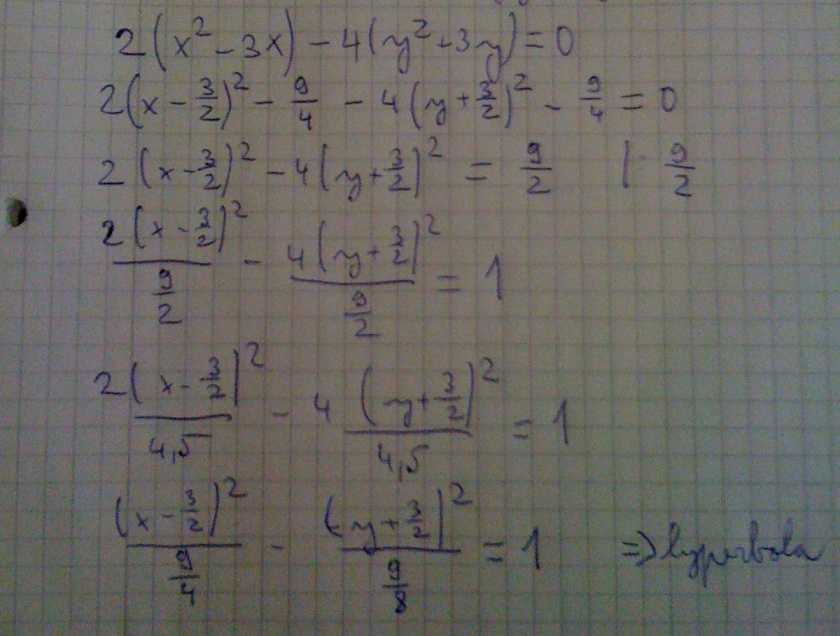 2(x² - 3x) - 4(y² + 3y) = 0
2(x - 3/2)² - 9/4 - 4(y + 3/2)² - 9/4 = 0
2(x - 3/2)² - 4(y + 3/2)² = 9/2 | · 9/2
2(x - 3/2)² / (9/2) - 4(y + 3/2)² / (9/2) = 1
2 (x - 3/2)² / 4,5 - 4 (y + 3/2)² / 4,5 = 1
(x - 3/2)² / (9/4) - (y + 3/2)² / (9/8) = 1 => hyperbola